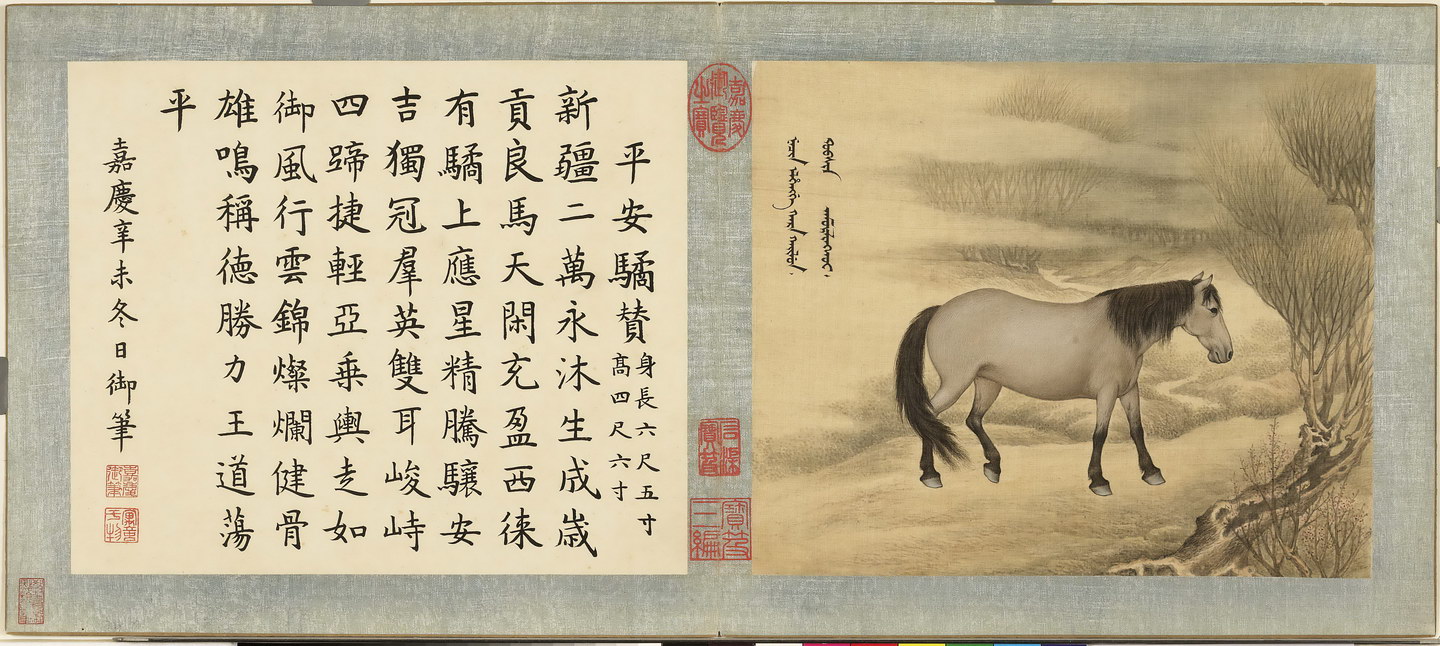 平安驈賛
身長六尺五寸
高四尺六寸
新疆二萬永沐生成歲
貢良馬天閑充盈西徠
有驈上應星精騰驤安
吉獨冠羣英雙耳峻峙
四蹄捷輕亞乘輿走如
御風行雲錦燦爛健骨
雄鳴稱德勝力王道蕩
平
嘉慶辛未冬日御筆
嘉慶御筆
嘉慶御覽之寶
石渠寶笈
寶笈三編